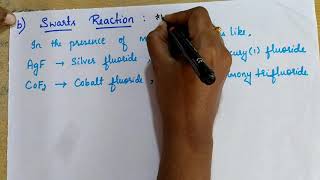 b) Swarts Reaction :
In the presence of m s like,
AgF → Silver fluoride cury(I) fluoride
CoF₂ → Cobalt fluoride, mony trifluoride